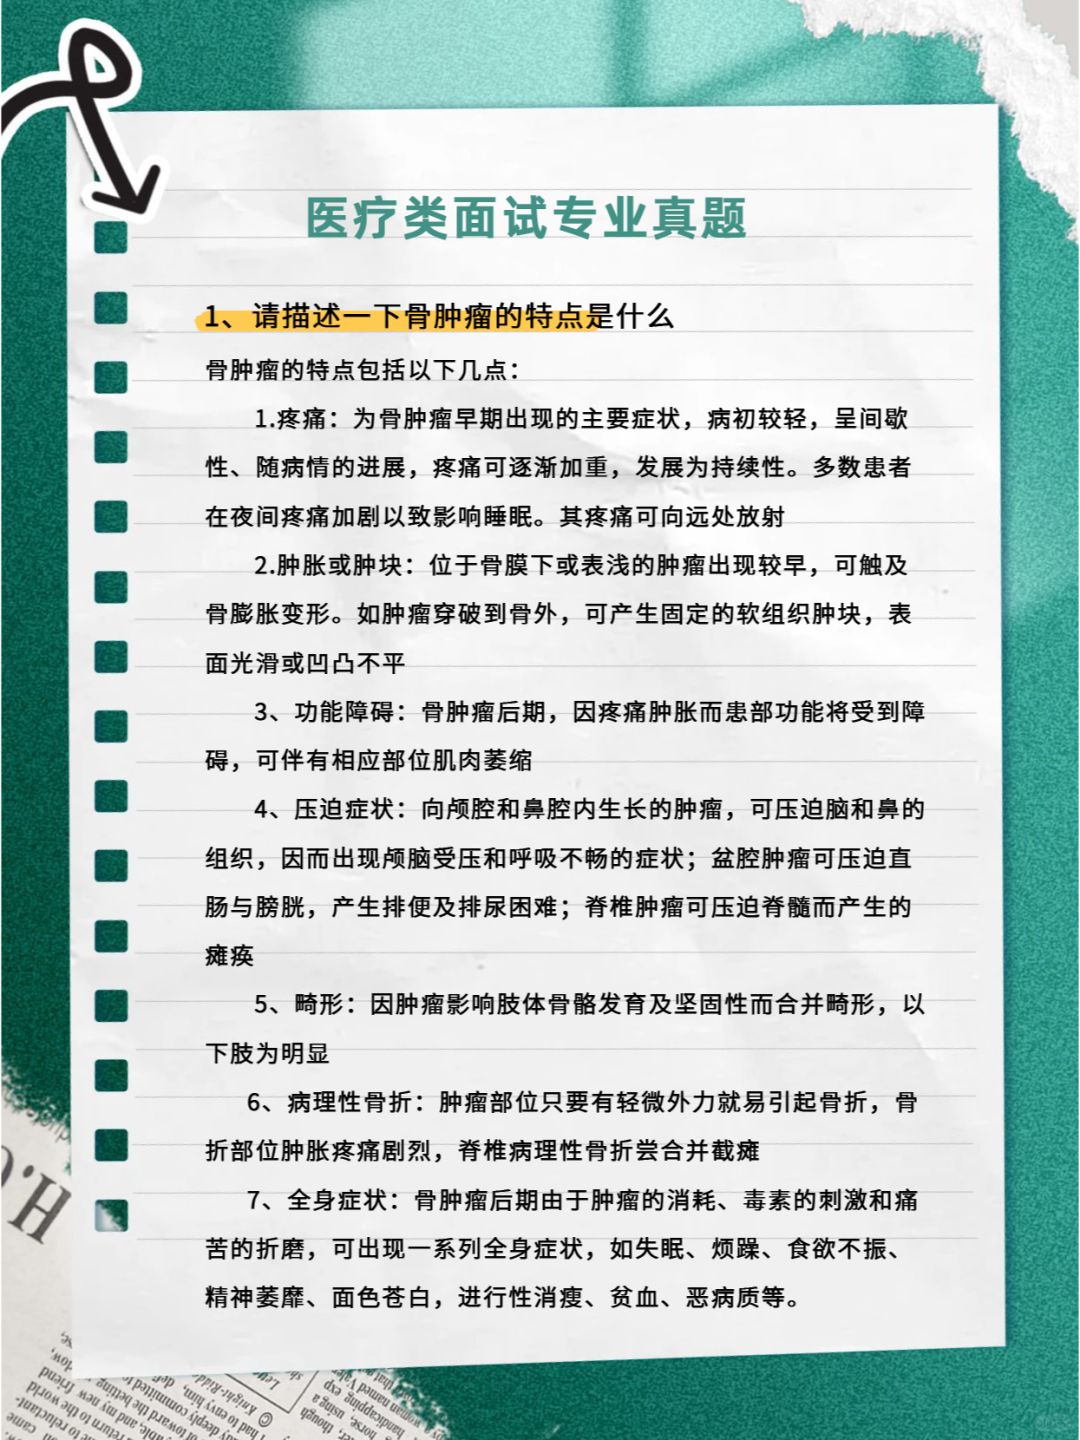 医疗类面试专业真题
1、请描述一下骨肿瘤的特点是什么
骨肿瘤的特点包括以下几点：
1.疼痛：为骨肿瘤早期出现的主要症状，病初较轻，呈间歇
性、随病情的进展，疼痛可逐渐加重，发展为持续性。多数患者
在夜间疼痛加剧以致影响睡眠。其疼痛可向远处放射
2.肿胀或肿块：位于骨膜下或表浅的肿瘤出现较早，可触及
骨膨胀变形。如肿瘤穿破到骨外，可产生固定的软组织肿块，表
面光滑或凹凸不平
3、功能障碍：骨肿瘤后期，因疼痛肿胀而患部功能将受到障
碍，可伴有相应部位肌肉萎缩
4、压迫症状：向颅腔和鼻腔内生长的肿瘤，可压迫脑和鼻的
组织，因而出现颅脑受压和呼吸不畅的症状；盆腔肿瘤可压迫直
肠与膀胱，产生排便及排尿困难；脊椎肿瘤可压迫脊髓而产生的
瘫痪
5、畸形：因肿瘤影响肢体骨骼发育及坚固性而合并畸形，以
下肢为明显
6、病理性骨折：肿瘤部位只要有轻微外力就易引起骨折，骨
折部位肿胀疼痛剧烈，脊椎病理性骨折尝合并截瘫
7、全身症状：骨肿瘤后期由于肿瘤的消耗、毒素的刺激和痛
苦的折磨，可出现一系列全身症状，如失眠、烦躁、食欲不振、
精神萎靡、面色苍白，进行性消瘦、贫血、恶病质等。
H.C